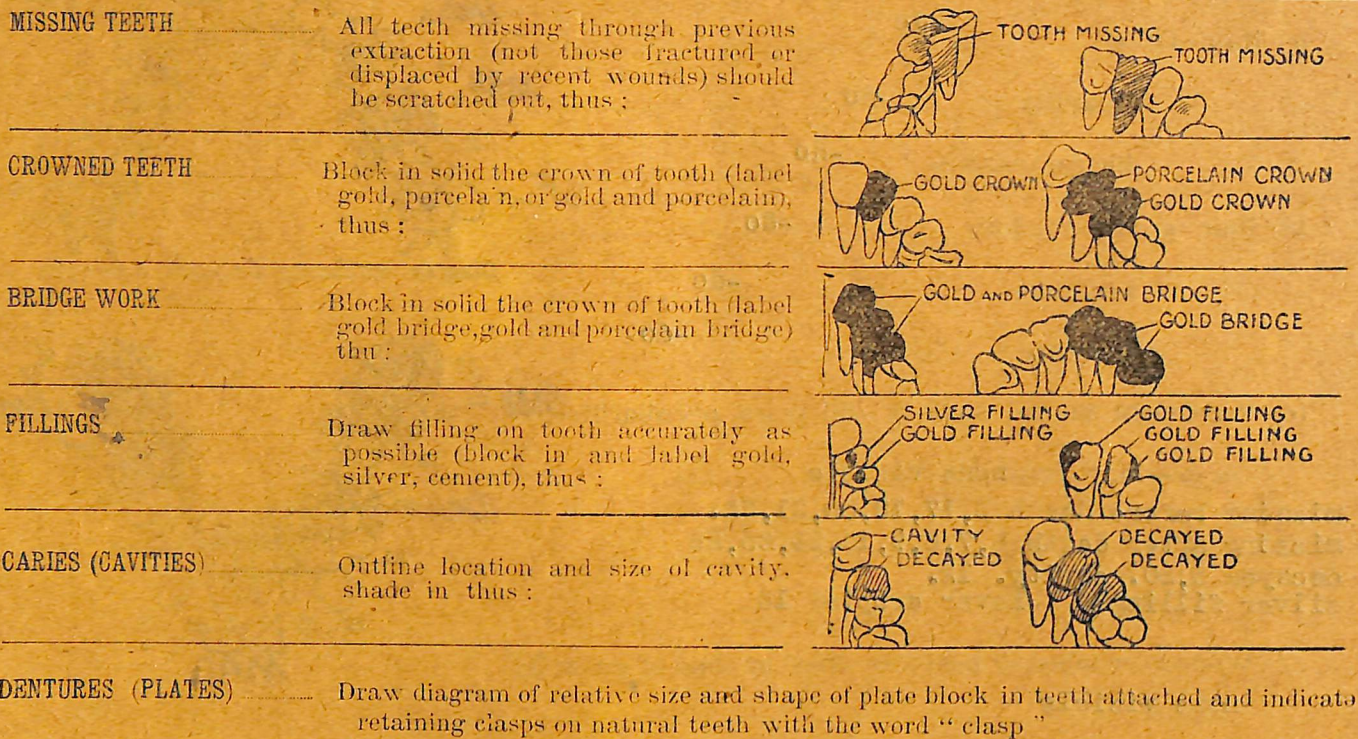 MISSING TEETH
All teeth missing through previous
extraction (not those fractured or
displaced by recent wounds) should
be scratched out, thus :
TOOTH MISSING
TOOTH MISSING
CROWNED TEETH
Block in solid the crown of tooth (label
gold, porcela n, or gold and porcelain),
thus :
GOLD CROWN
PORCELAIN CROWN
GOLD CROWN
BRIDGE WORK
Block in solid the crown of tooth (label
gold bridge, gold and porcelain bridge)
thu :
GOLD AND PORCELAIN BRIDGE
GOLD BRIDGE
FILLINGS
Draw filling on tooth accurately as
possible (block in and label gold,
silver, cement), thus :
SILVER FILLING
GOLD FILLING
GOLD FILLING
GOLD FILLING
GOLD FILLING
CARIES (CAVITIES)
Outline location and size of cavity,
shade in thus :
CAVITY
DECAYED
DECAYED
DECAYED
DENTURES (PLATES)
Draw diagram of relative size and shape of plate block in teeth attached and indicate
retaining clasps on natural teeth with the word “ clasp ”